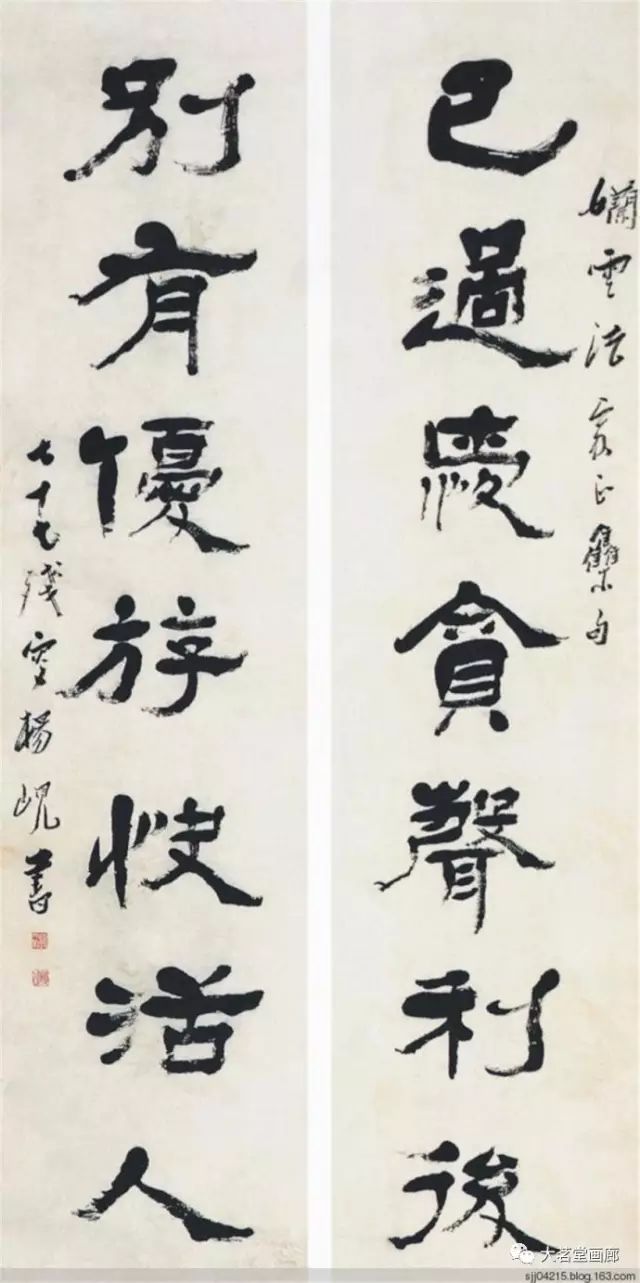 孄雲法家正雧句
已過愛貪聲利後
別有優斿快活人
七十七殘叟楊峴書
大茗堂画廊
sjj04215.blog.163.com